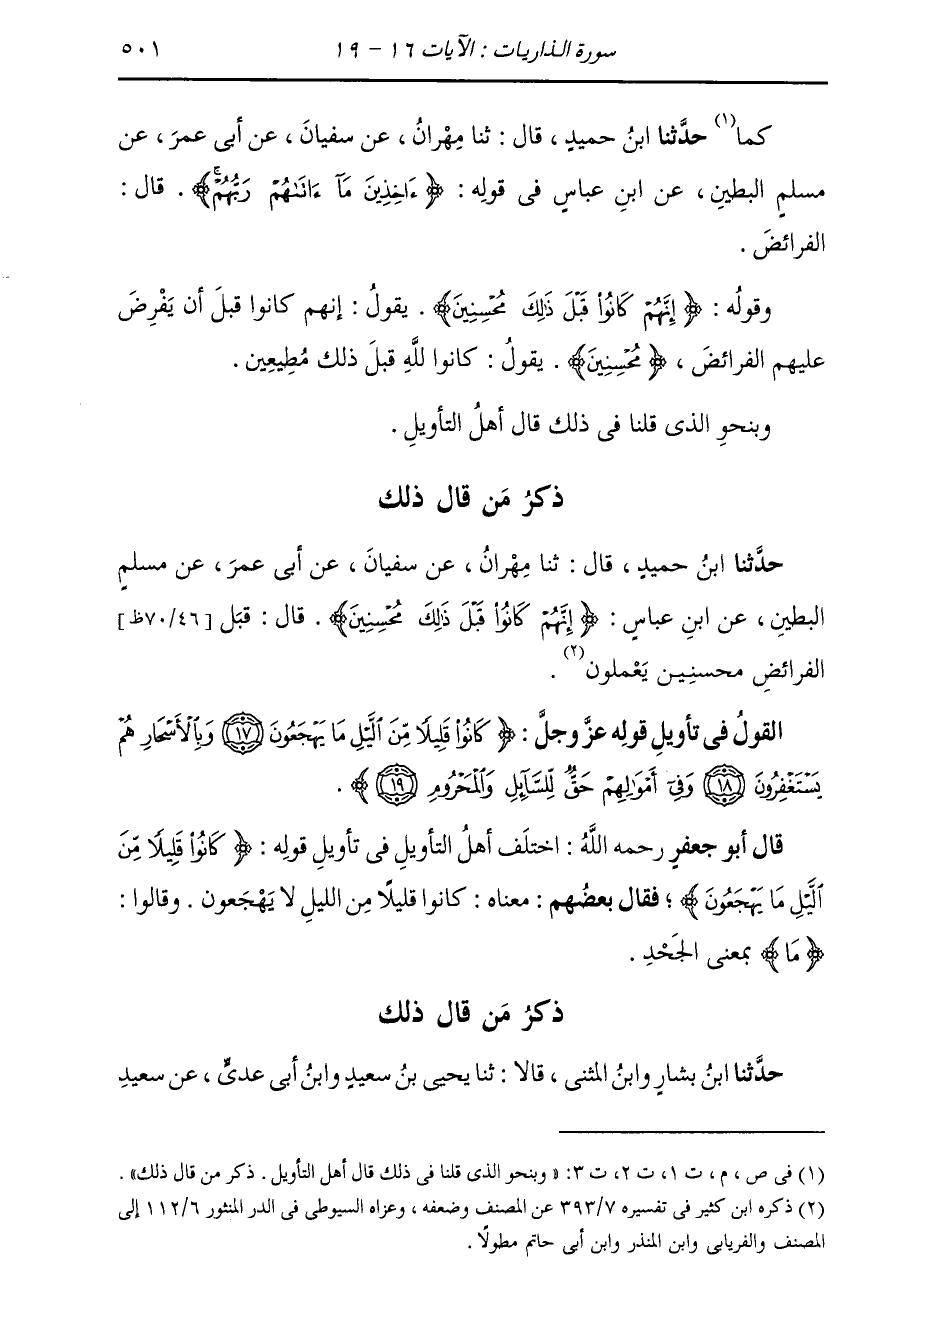 سورة الذاريات : الآيات ١٦ - ١٩
٥٠١
كما(١) حدَّثنا ابنُ حميدٍ ، قال : ثنا مِهْرانُ ، عن سفيانَ ، عن أبى عمرَ ، عن
مسلمٍ البطينِ ، عن ابنِ عباسٍ فى قولِه : ﴿ ءَاخِذِينَ مَآ ءَاتَىٰهُمْ رَبُّهُمْۚ ﴾ . قال :
الفرائضَ .
وقولُه : ﴿ إِنَّهُمْ كَانُوا۟ قَبْلَ ذَٰلِكَ مُحْسِنِينَ ﴾ . يقولُ : إنهم كانوا قبلَ أن يَفْرِضَ
عليهم الفرائضَ ، ﴿ مُحْسِنِينَ ﴾ . يقولُ : كانوا للَّهِ قبلَ ذلك مُطِيعِين .
وبنحوِ الذى قلنا فى ذلك قال أهلُ التأويلِ .
ذكرُ مَن قال ذلك
حدَّثنا ابنُ حميدٍ ، قال : ثنا مِهْرانُ ، عن سفيانَ ، عن أبى عمرَ ، عن مسلمٍ
البطينِ ، عن ابنِ عباسٍ : ﴿ إِنَّهُمْ كَانُوا۟ قَبْلَ ذَٰلِكَ مُحْسِنِينَ ﴾ . قال : قبَل [٧٠/٤٦ظ]
الفرائضِ محسنِين يَعْملون(٢) .
القولُ فى تأويلِ قولِه عزَّ وجلَّ : ﴿ كَانُوا۟ قَلِيلًا مِّنَ ٱلَّيْلِ مَا يَهْجَعُونَ ١٧ وَبِٱلْأَسْحَارِ هُمْ
يَسْتَغْفِرُونَ ١٨ وَفِىٓ أَمْوَٰلِهِمْ حَقٌّ لِّلسَّآئِلِ وَٱلْمَحْرُومِ ١٩ ﴾ .
قال أبو جعفرٍ رحمه اللَّهُ : اختلَف أهلُ التأويلِ فى تأويلِ قولِه : ﴿ كَانُوا۟ قَلِيلًا مِّنَ
ٱلَّيْلِ مَا يَهْجَعُونَ ﴾ ؛ فقال بعضُهم : معناه : كانوا قليلًا مِن الليلِ لا يَهْجَعون . وقالوا :
﴿ مَا ﴾ بمعنى الجَحْدِ .
ذكرُ مَن قال ذلك
حدَّثنا ابنُ بشارٍ وابنُ المثنى ، قالا : ثنا يحيى بنُ سعيدٍ وابنُ أبى عدىٍّ ، عن سعيدِ
(١) فى ص ، م ، ت ١، ت ٢، ت ٣: « وبنحو الذى قلنا فى ذلك قال أهل التأويل . ذكر من قال ذلك» .
(٢) ذكره ابن كثير فى تفسيره ٣٩٣/٧ عن المصنف وضعفه ، وعزاه السيوطى فى الدر المنثور ١١٢/٦ إلى
المصنف والفريابى وابن المنذر وابن أبى حاتم مطولًا .